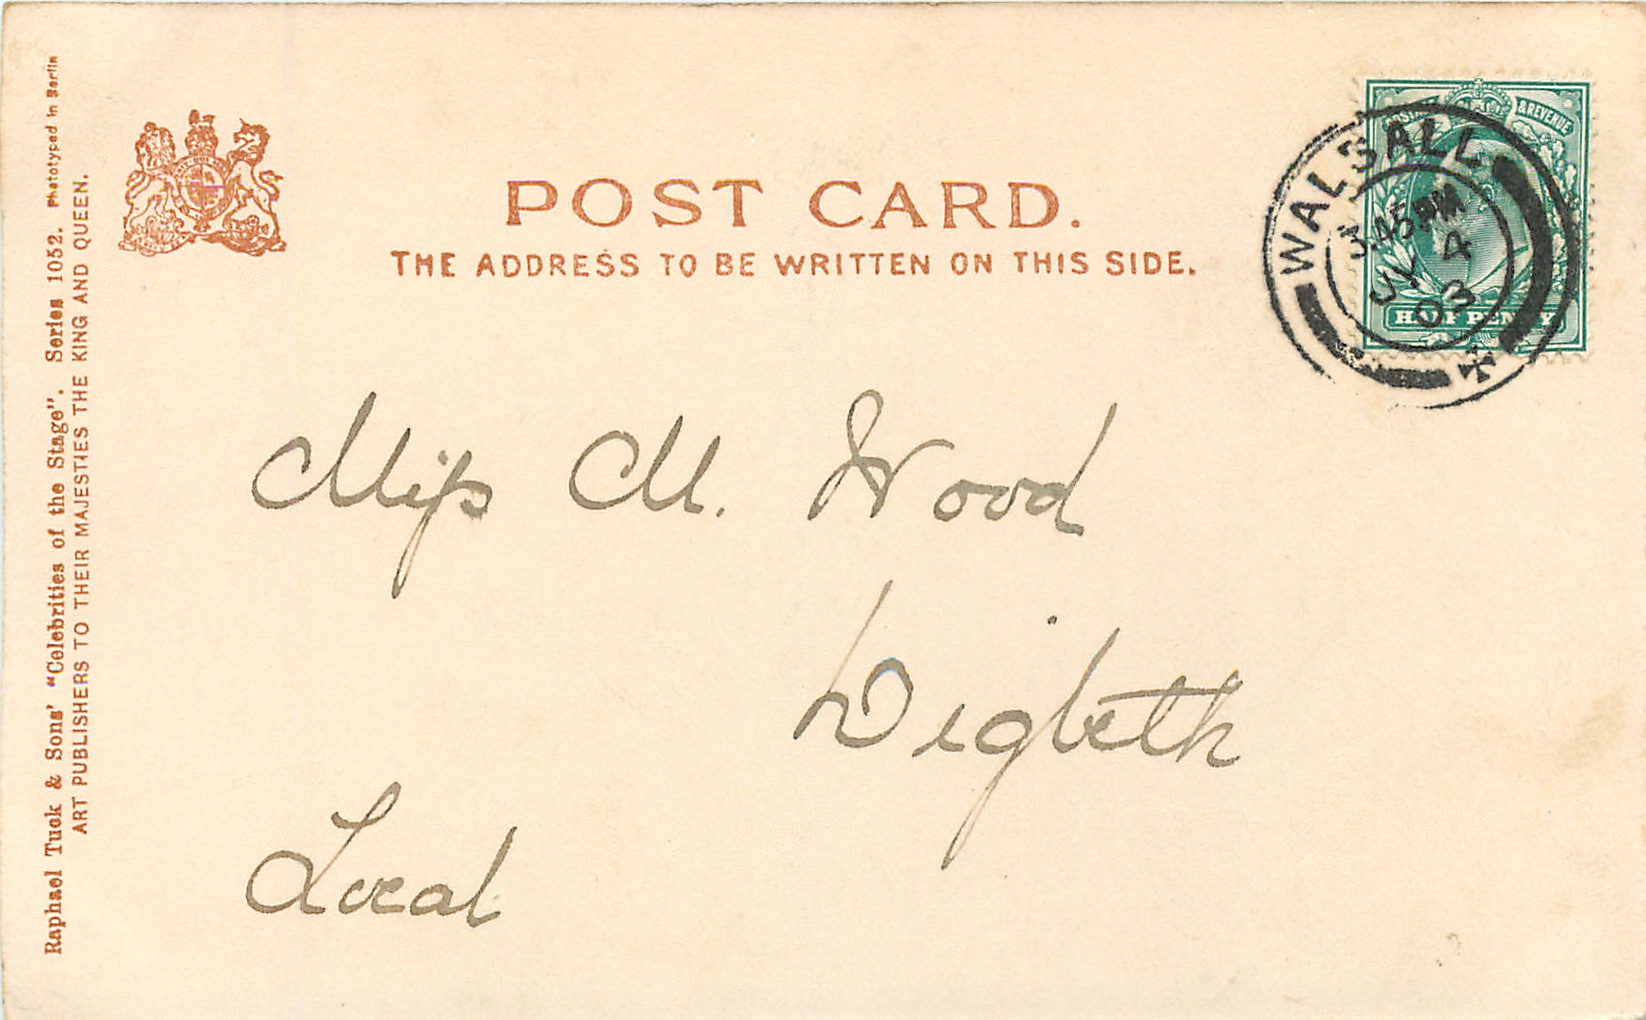 Raphael Tuck & Sons' "Celebrities of the Stage". Series 1052. Phototyped in Berlin
ART PUBLISHERS TO THEIR MAJESTIES THE KING AND QUEEN.
POST CARD.
THE ADDRESS TO BE WRITTEN ON THIS SIDE.
& REVENUE
HALF PENNY
WALSALL
45 PM
JY 4
03
Miss M. Wood
Digbeth
Local